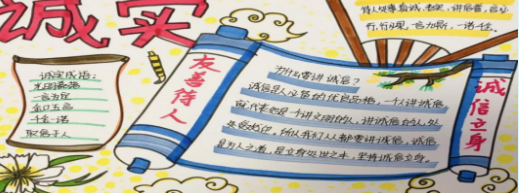 诚实
待人处事真诚、老实、讲信誉，言必
行、行必果，一言九鼎，一诺千金。
诚实成语：
光明磊落
一言为定
金口玉言
千金一诺
取信于人
友善待人
为什么要讲诚信？
诚信是人必备的优良品格，一个人讲诚信，
就代表是一个讲文明的人，讲诚信的人，处
处受欢迎，所以我们人人都要讲诚信，诚信
是为人之道，是立身处世之本，坚持诚信立身。
诚信立身